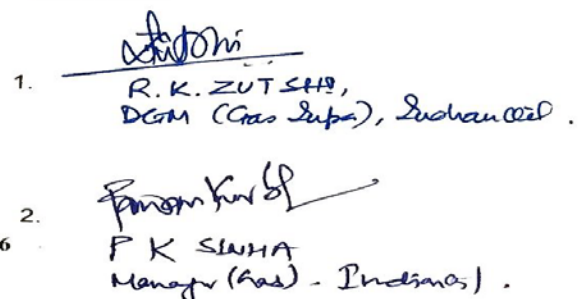 1.
R. K. ZUTSHI,
DGM (Gas Supa), Indian Oil.
2.
6
P K SINHA
Manager (Gas) - Indianoil.